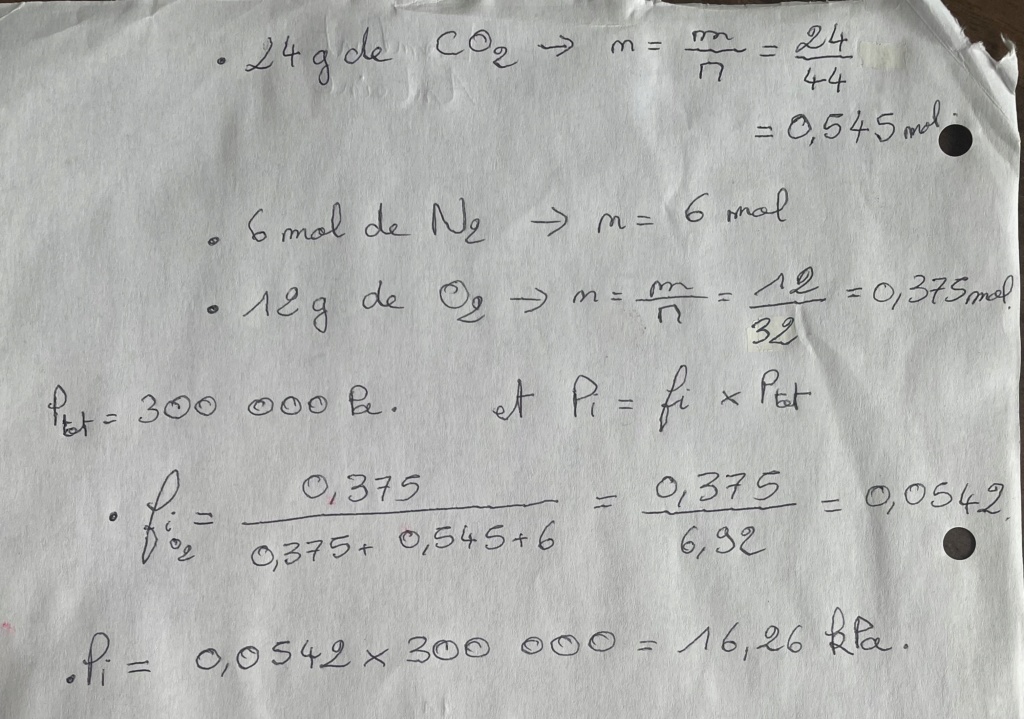 . 24 g de CO₂ → n = m/M = 24/44
= 0,545 mol.
. 6 mol de N₂ → n = 6 mol
. 12 g de O₂ → n = m/M = 12/32 = 0,375 mol.
Ptot = 300 000 Pa. et Pi = fi × Ptot
. fi O₂ = 0,375/(0,375 + 0,545 + 6) = 0,375/6,92 = 0,0542.
. Pi = 0,0542 × 300 000 = 16,26 kPa.